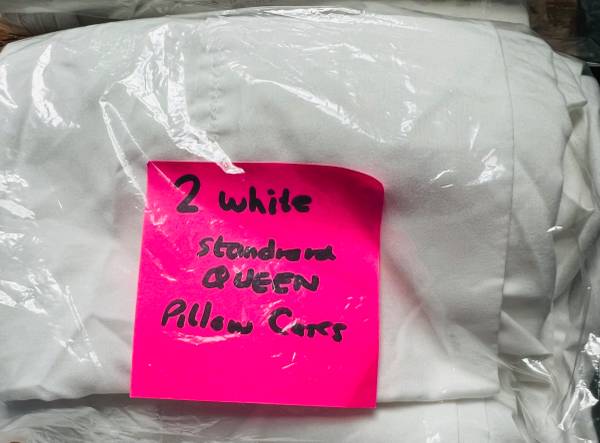 2 white
standard
QUEEN
Pillow Cases